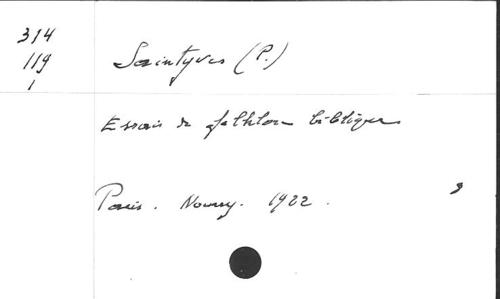 314
119
1
Saintyves (P.)
Essais de folklore bibliques
Paris. Nourry. 1922.